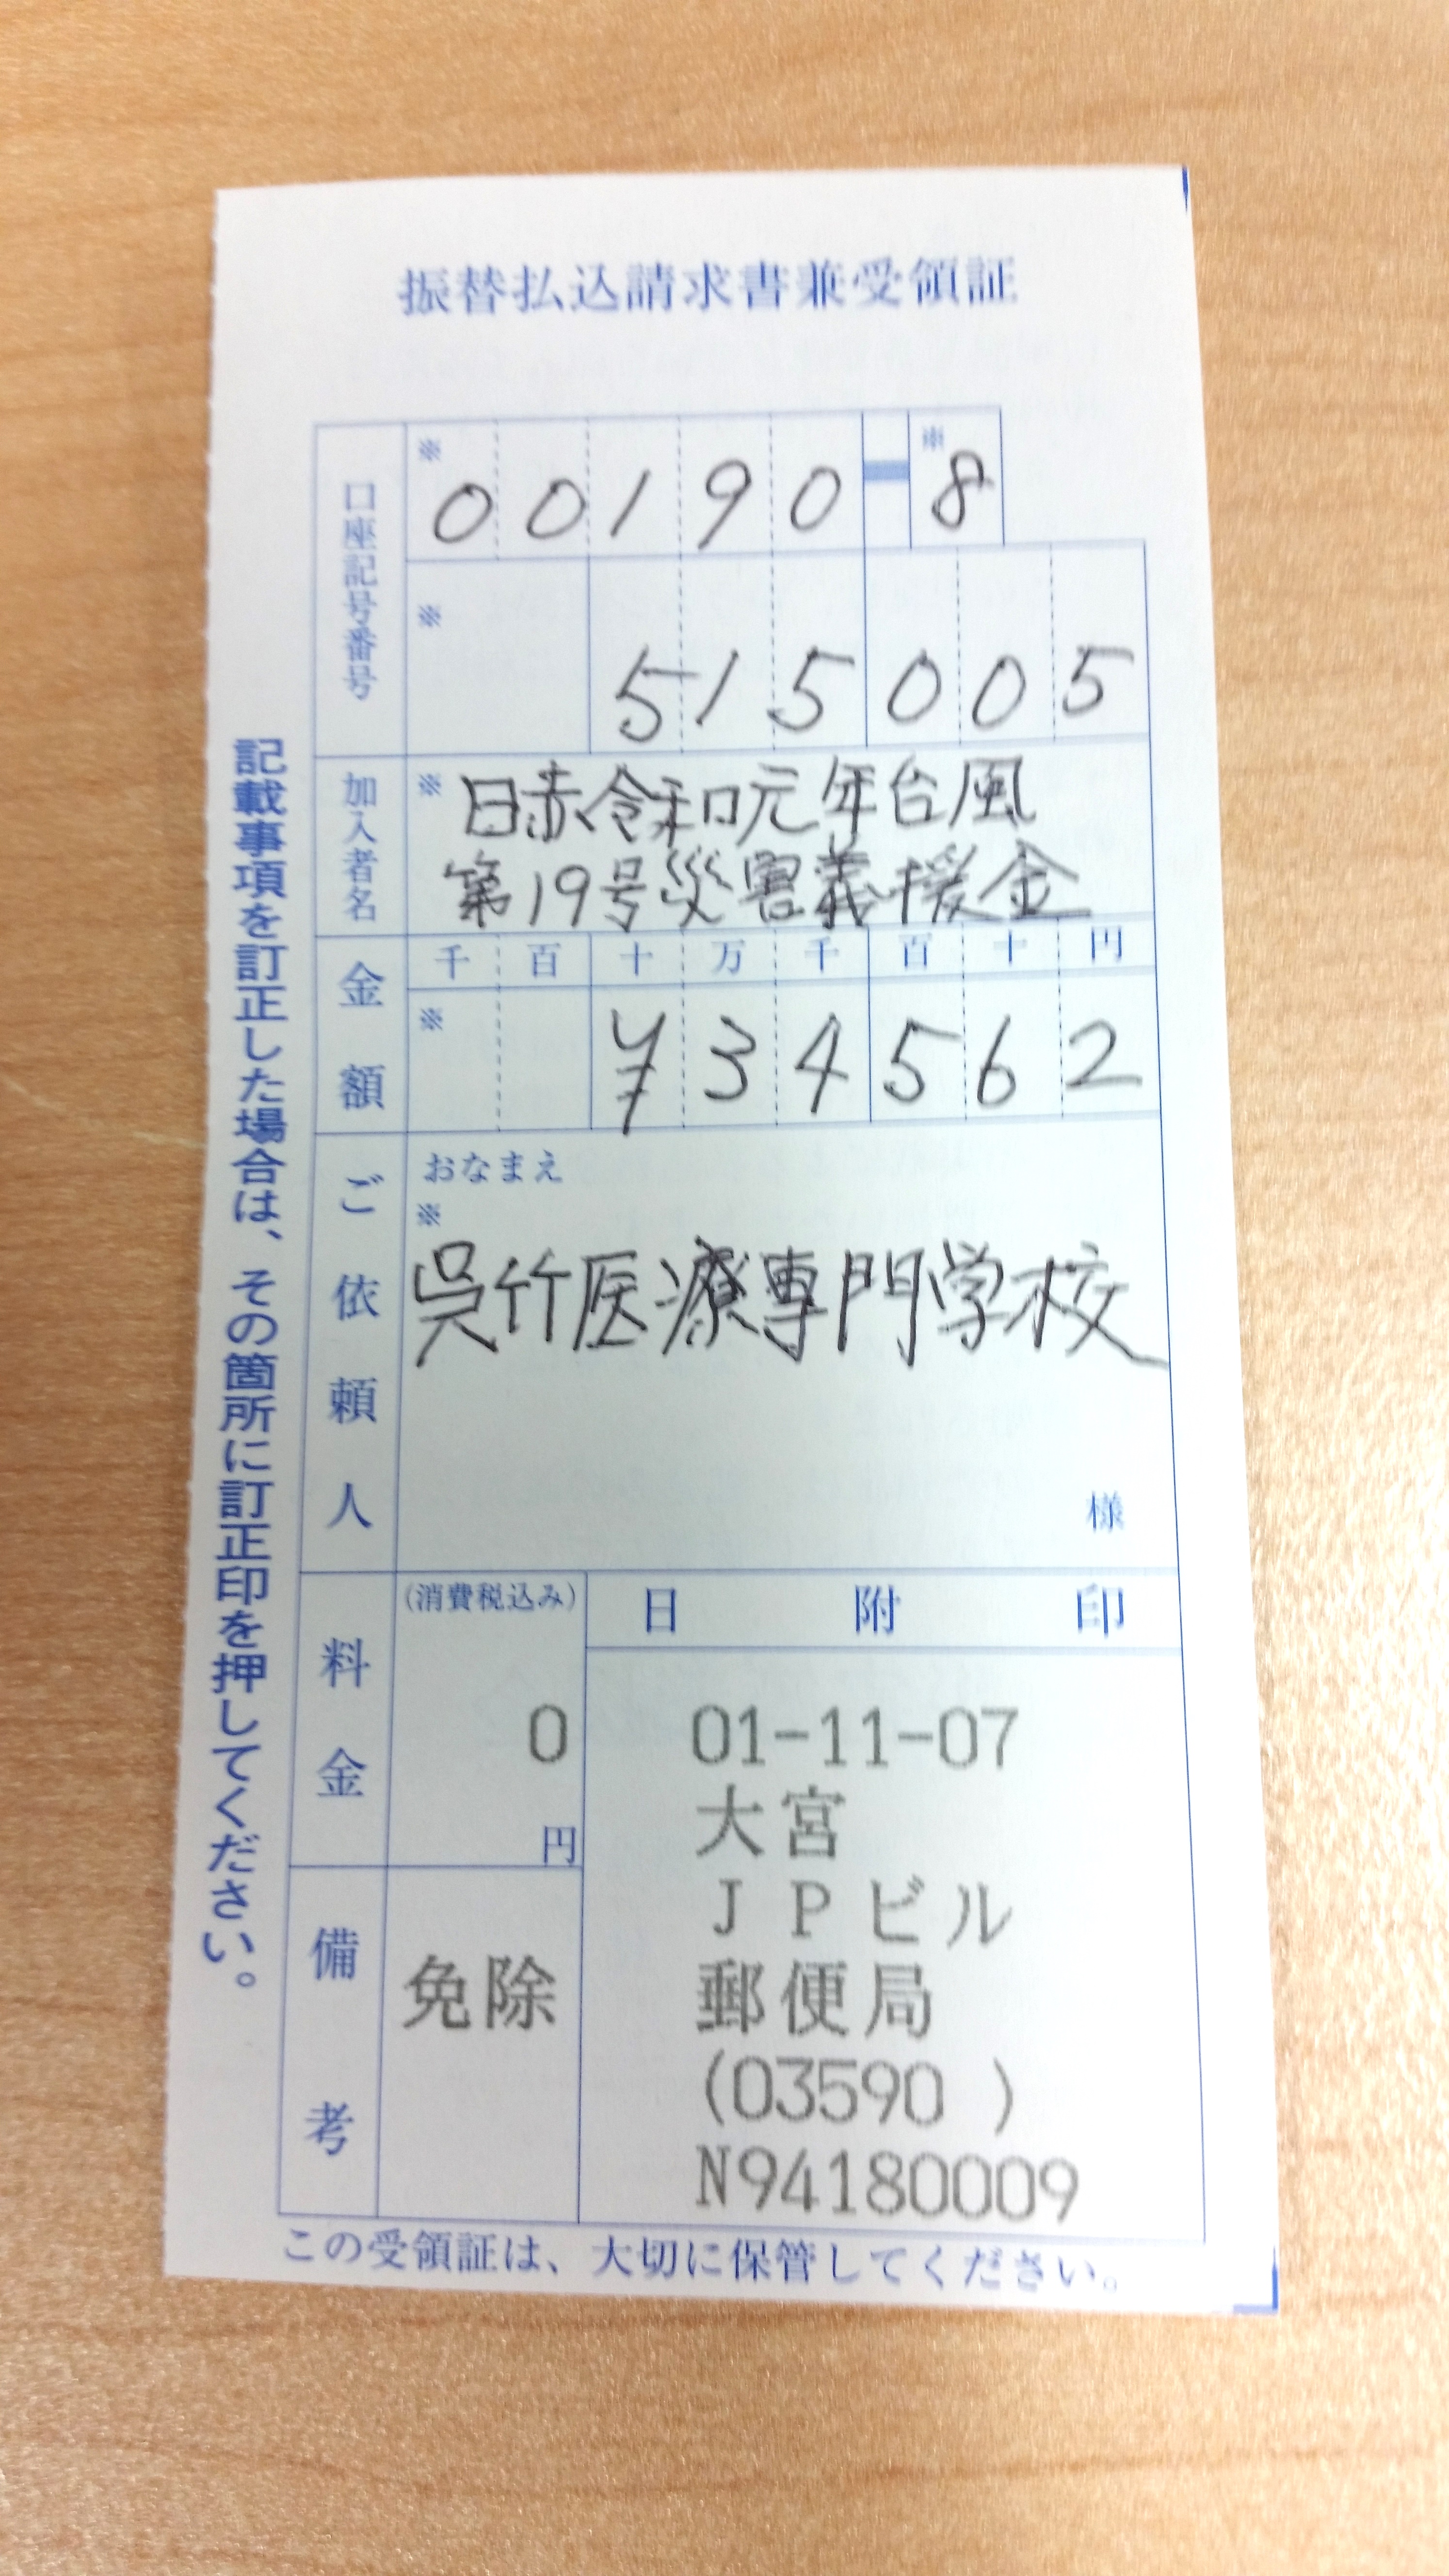 振替払込請求書兼受領証
口座記号番号
※ 00190-8
※ 515005
加入者名
※ 日赤令和元年台風
第19号災害義援金
金額
千 百 十 万 千 百 十 円
※ ¥34562
ご依頼人
おなまえ
※
呉竹医療専門学校
様
料金
(消費税込み)
0
円
備考
免除
日附印
01-11-07
大宮
JPビル
郵便局
(03590 )
N94180009
この受領証は、大切に保管してください。
記載事項を訂正した場合は、その箇所に訂正印を押してください。